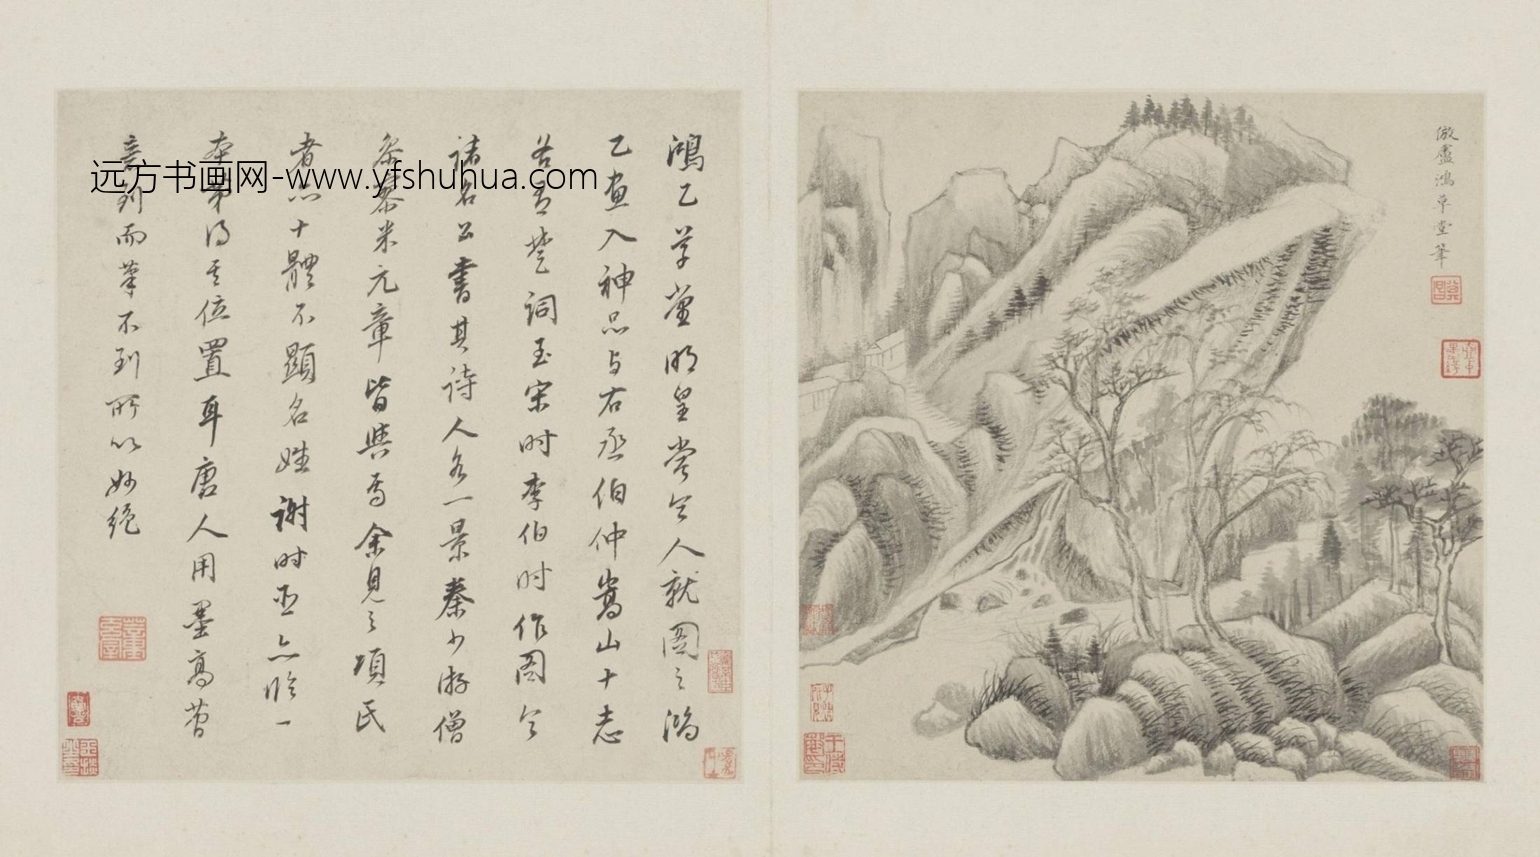 倣盧鴻草堂筆
鴻乙草堂明皇嘗令人就圖之鴻
乙畫入神品与右丞伯仲嵩山十志
楚詞至宋时李伯时作圖令
諸名公書其詩人各一景秦少游僧
參寥米元章皆與焉余見之項氏
者亦十體不顯名姓謝时臣亦臨一
本第得其位置耳唐人用墨高
意到而筆不到所以妙絕
远方书画网-www.yfshuhua.com